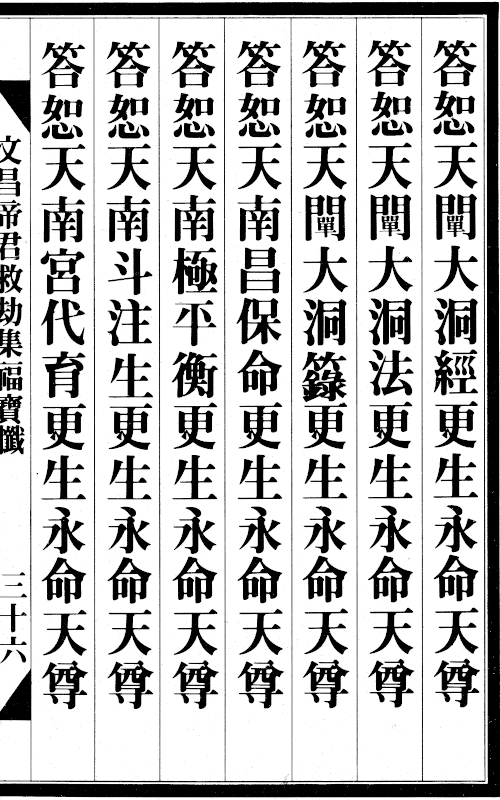 答恕天闡大洞經更生永命天尊
答恕天闡大洞法更生永命天尊
答恕天闡大洞籙更生永命天尊
答恕天南昌保命更生永命天尊
答恕天南極平衡更生永命天尊
答恕天南斗注生更生永命天尊
答恕天南宮代育更生永命天尊
文昌帝君救劫集福寶懺 三十六